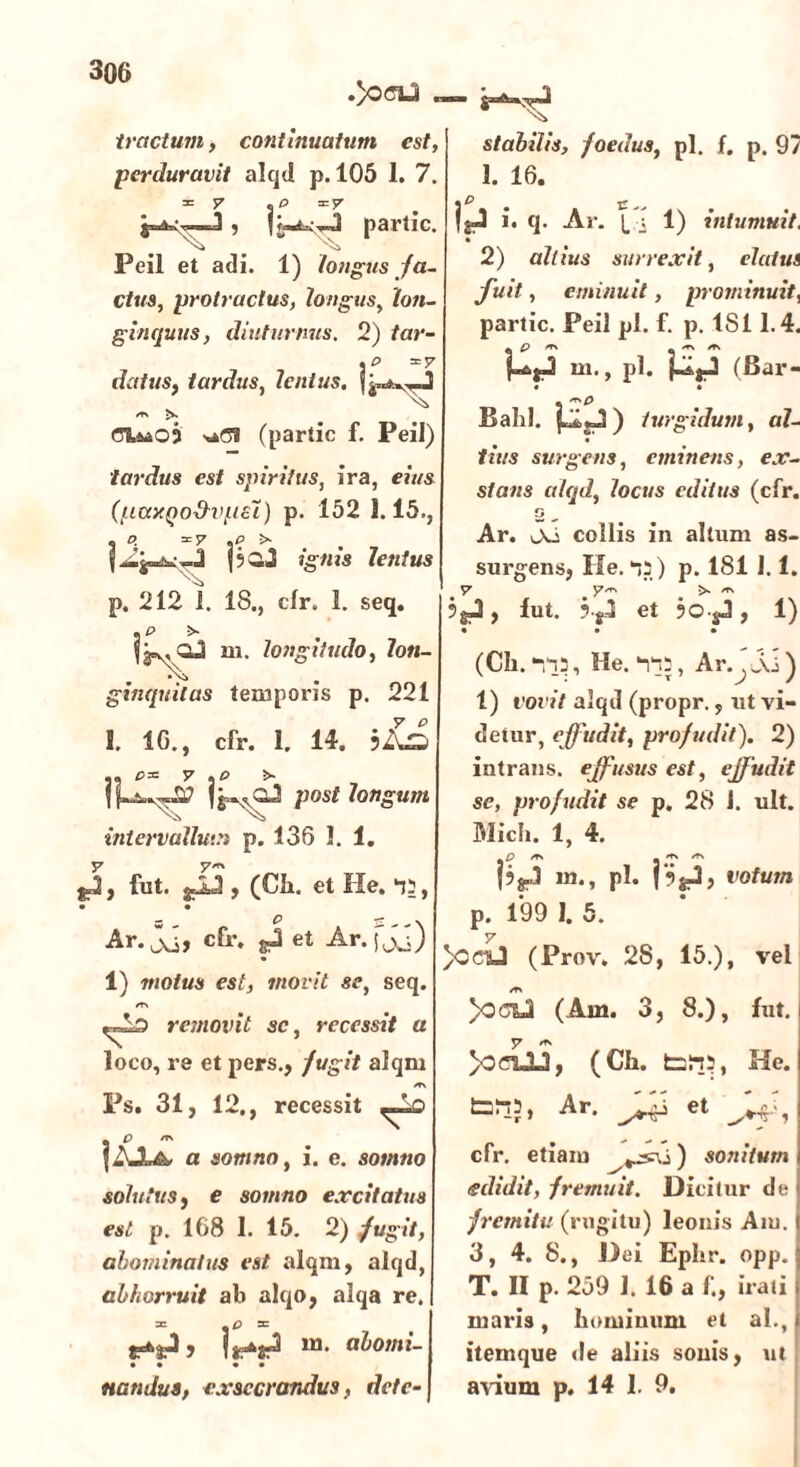 306
.ܢܗܡ — ܢܓܝܪ
tractum, continuatum est,
perduravit alqd p. 105 l. 7.
ܢܓܝܪ, ܢܓܝܪܐ partic.
Peil et adi. 1) longus fa-
ctus, protractus, longus, lon-
ginquus, diuturnus. 2) tar-
datus, tardus, lentus. ܢܓܝܪܐ
ܗܝ ܪܘܚܗ (partic f. Peil)
tardus est spiritus, ira, eius
(μακροθυμεῖ) p. 152 l. 15.,
ܢܘܪܐ ܢܓܝܪܬܐ ignis lentus
p. 212 l. 18., cfr. l. seq.
ܢܘܓܪܐ m. longitudo, lon-
ginquitas temporis p. 221
l. 16., cfr. l. 14. ܒܬܪ
ܢܘܓܪܐ ܣܓܝܐܐ post longum
intervallum p. 136 l. 1.
ܢܕ, fut. ܢܢܕ, (Ch. et He. נד,
Ar. ند, cfr. ܢܕ et Ar. ندا)
1) motus est, movit se, seq.
ܡܢ removit se, recessit a
loco, re et pers., fugit alqm
Ps. 31, 12., recessit ܡܢ
ܫܢܬܐ a somno, i. e. somno
solutus, e somno excitatus
est p. 168 l. 15. 2) fugit,
abominatus est alqm, alqd,
abhorruit ab alqo, alqa re.
ܢܕܝܕ, ܢܕܝܕܐ m. abomi-
nandus, exsecrandus, dete-
stabilis, foedus, pl. f. p. 97
l. 16.
ܢܕܐ i. q. Ar. 1) intumuit.
2) altius surrexit, elatus
fuit, eminuit, prominuit,
partic. Peil pl. f. p. 181 l. 4.
ܢܕܝܐ m., pl. ܢܕܝܐ (Bar-
Bahl. ܢܕܝܐ) turgidum, al-
tius surgens, eminens, ex-
stans alqd, locus editus (cfr.
Ar. ند collis in altum as-
surgens, He. נד) p. 181 l. 1.
ܢܕܪ, fut. ܢܕܪ et ܢܕܘܪ, 1)
(Ch. נדר, He. נדר, Ar. نذر)
1) vovit alqd (propr., ut vi-
detur, effudit, profudit). 2)
intrans. effusus est, effudit
se, profudit se p. 28 l. ult.
Mich. 1, 4.
ܢܕܪܐ m., pl. ܢܕܪܐ, votum
p. 199 l. 5.
ܢܗܡ (Prov. 28, 15.), vel
ܢܗܡ (Am. 3, 8.), fut.
ܢܢܗܡ, (Ch. נהם, He.
נהם, Ar. نهم et نهم,
cfr. etiam نحم) sonitum
edidit, fremuit. Dicitur de
fremitu (rugitu) leonis Am.
3, 4. 8., Dei Ephr. opp.
T. II p. 259 l. 16 a f., irati
maris, hominum et al.,
itemque de aliis sonis, ut
avium p. 14 l. 9.